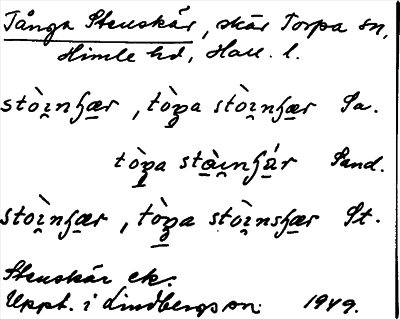 Tånga Stenskär, skär Torpa sn,
Himle hd, Hall. l.
stòi̯nɧær, tòŋa stòi̯nɧær Sa.
tòŋa stài̯nɧár Sand.
stòi̯nɧær, tòŋa stòi̯nsɧær St.
Stenskär ek.
Uppt. i Lindberg sn 1949.